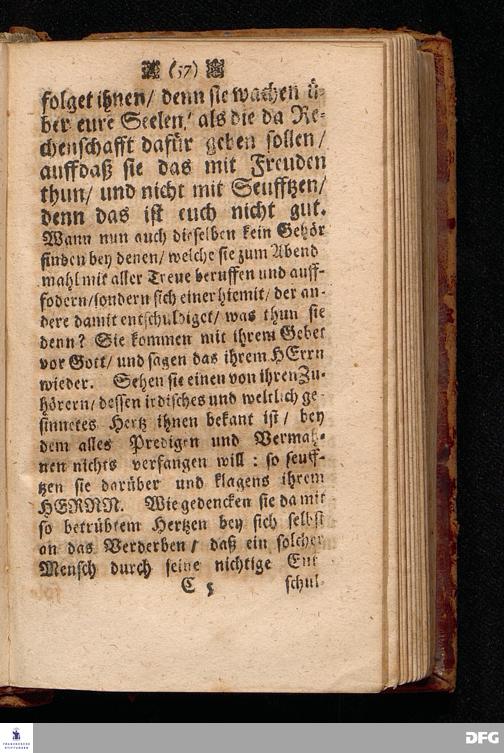 (57)
folget ihnen/ denn sie wachen ü-
ber eure Seelen/ als die da Re-
chenschafft dafür geben sollen/
auffdaß sie das mit Freuden
thun/ und nicht mit Seufftzen/
denn das ist euch nicht gut.
Wann nun auch dieselben kein Gehör
finden bey denen/ welche sie zum Abend
mahl mit aller Treue beruffen und auff-
fodern/ sondern sich einer hiemit/ der an-
dere damit entschuldiget/ was thun sie
denn? Sie kommen mit ihrem Gebet
vor Gott/ und sagen das ihrem HErrn
wieder. Sehen sie einen von ihren Zu-
hörern/ dessen irdisches und weltlich ge-
sinnetes Hertz ihnen bekant ist/ bey
dem alles Predigen und Vermah-
nen nichts verfangen will: so seuff-
tzen sie darüber und klagens ihrem
HERRN. Wie gedencken sie da mit
so betrübtem Hertzen bey sich selbst
an das Verderben/ daß ein solcher
Mensch durch seine nichtige Ent
C 5 schul-
FRANCKESCHE
STIFTUNGEN
DFG